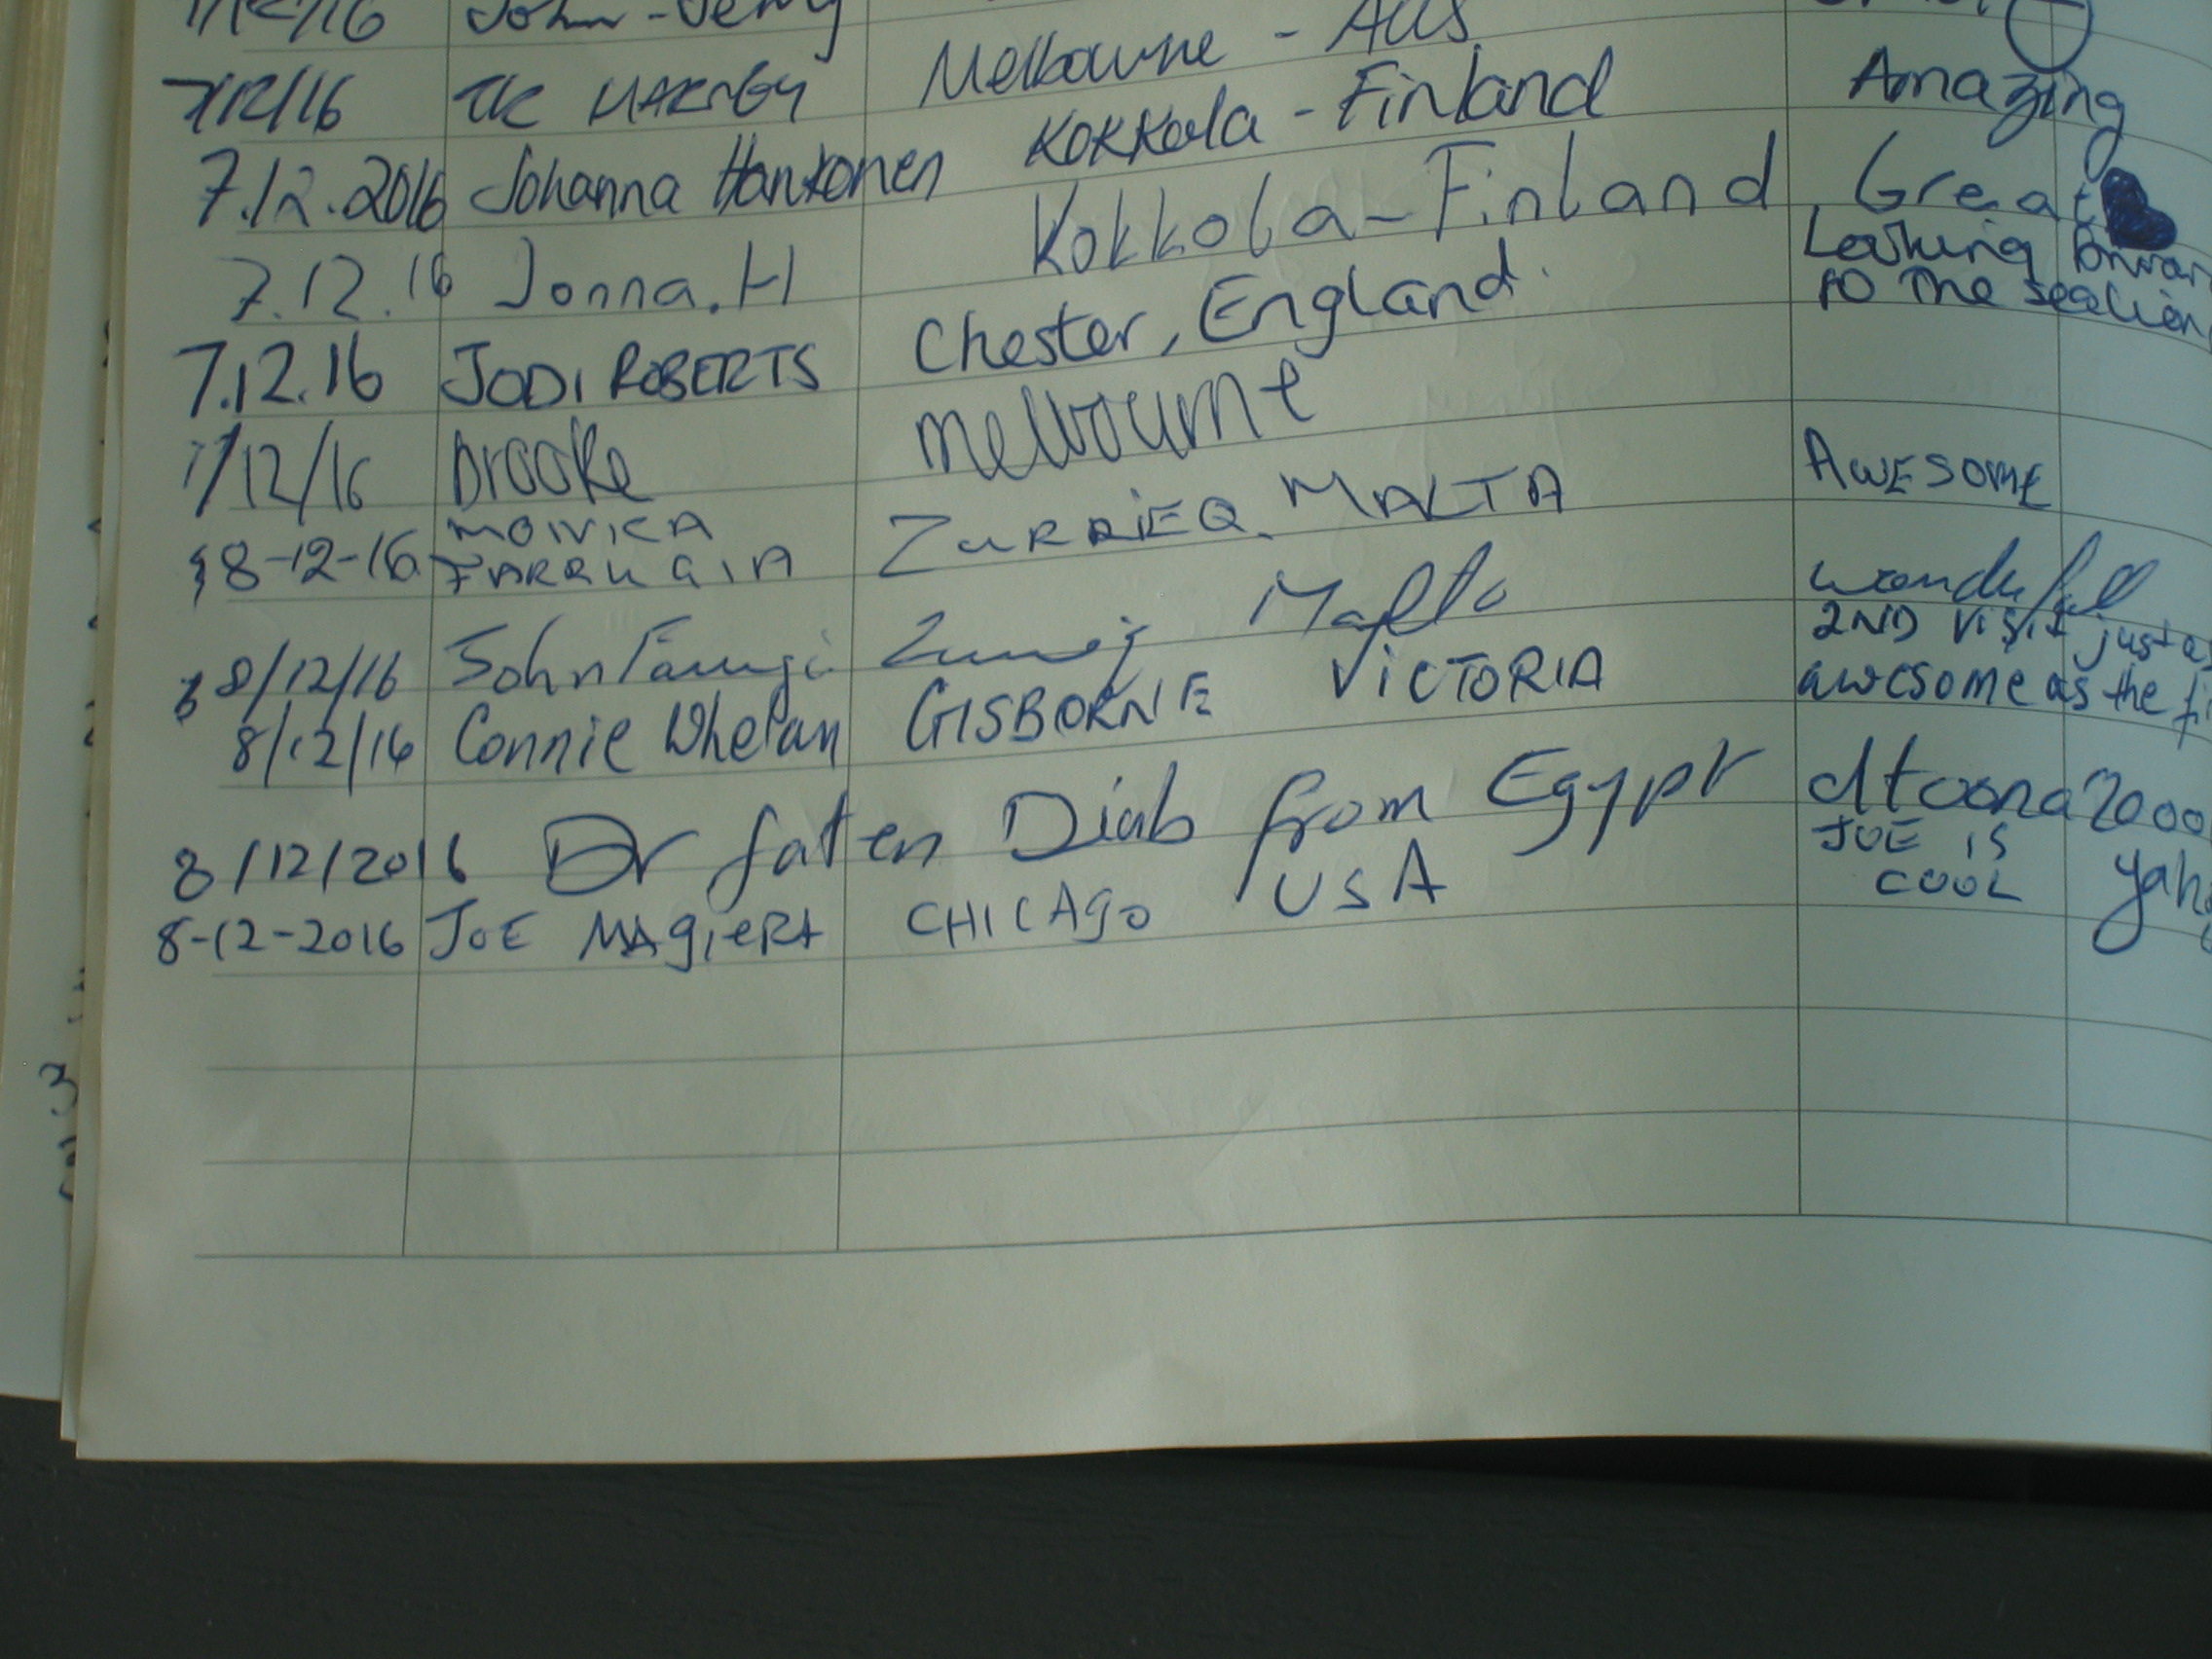 John - Jerry
7/12/16 Melbourne - AUS
7.12.2016 Johanna Hankonen Kokkola - Finland Amazing
7.12.16 Jonna.H Kokkola - Finland Great
7.12.16 JODI ROBERTS Chester, England. Looking forwar
to the sealion
7/12/16 Brooke Melbourne
8-12-16 MONICA
FARRUGIA ZURRIEQ. MALTA AWESOME
8/12/16 John Farrugia Malta wonderfull
8/12/16 Connie Whelan GISBORNE VICTORIA 2ND visit just a
awesome as the fi
8/12/2016 Dr faten Diab from Egypt dtoona2000
yah
8-12-2016 JOE MAGIERA CHICAGO USA JOE IS
COOL